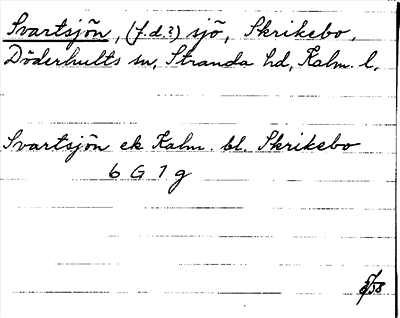 Svartsjön, (f.d.?) sjö, Skrikebo,
Döderhults sn, Stranda hd, Kalm. l.
Svartsjön ek Kalm. bl. Skrikebo
6 G 7 g